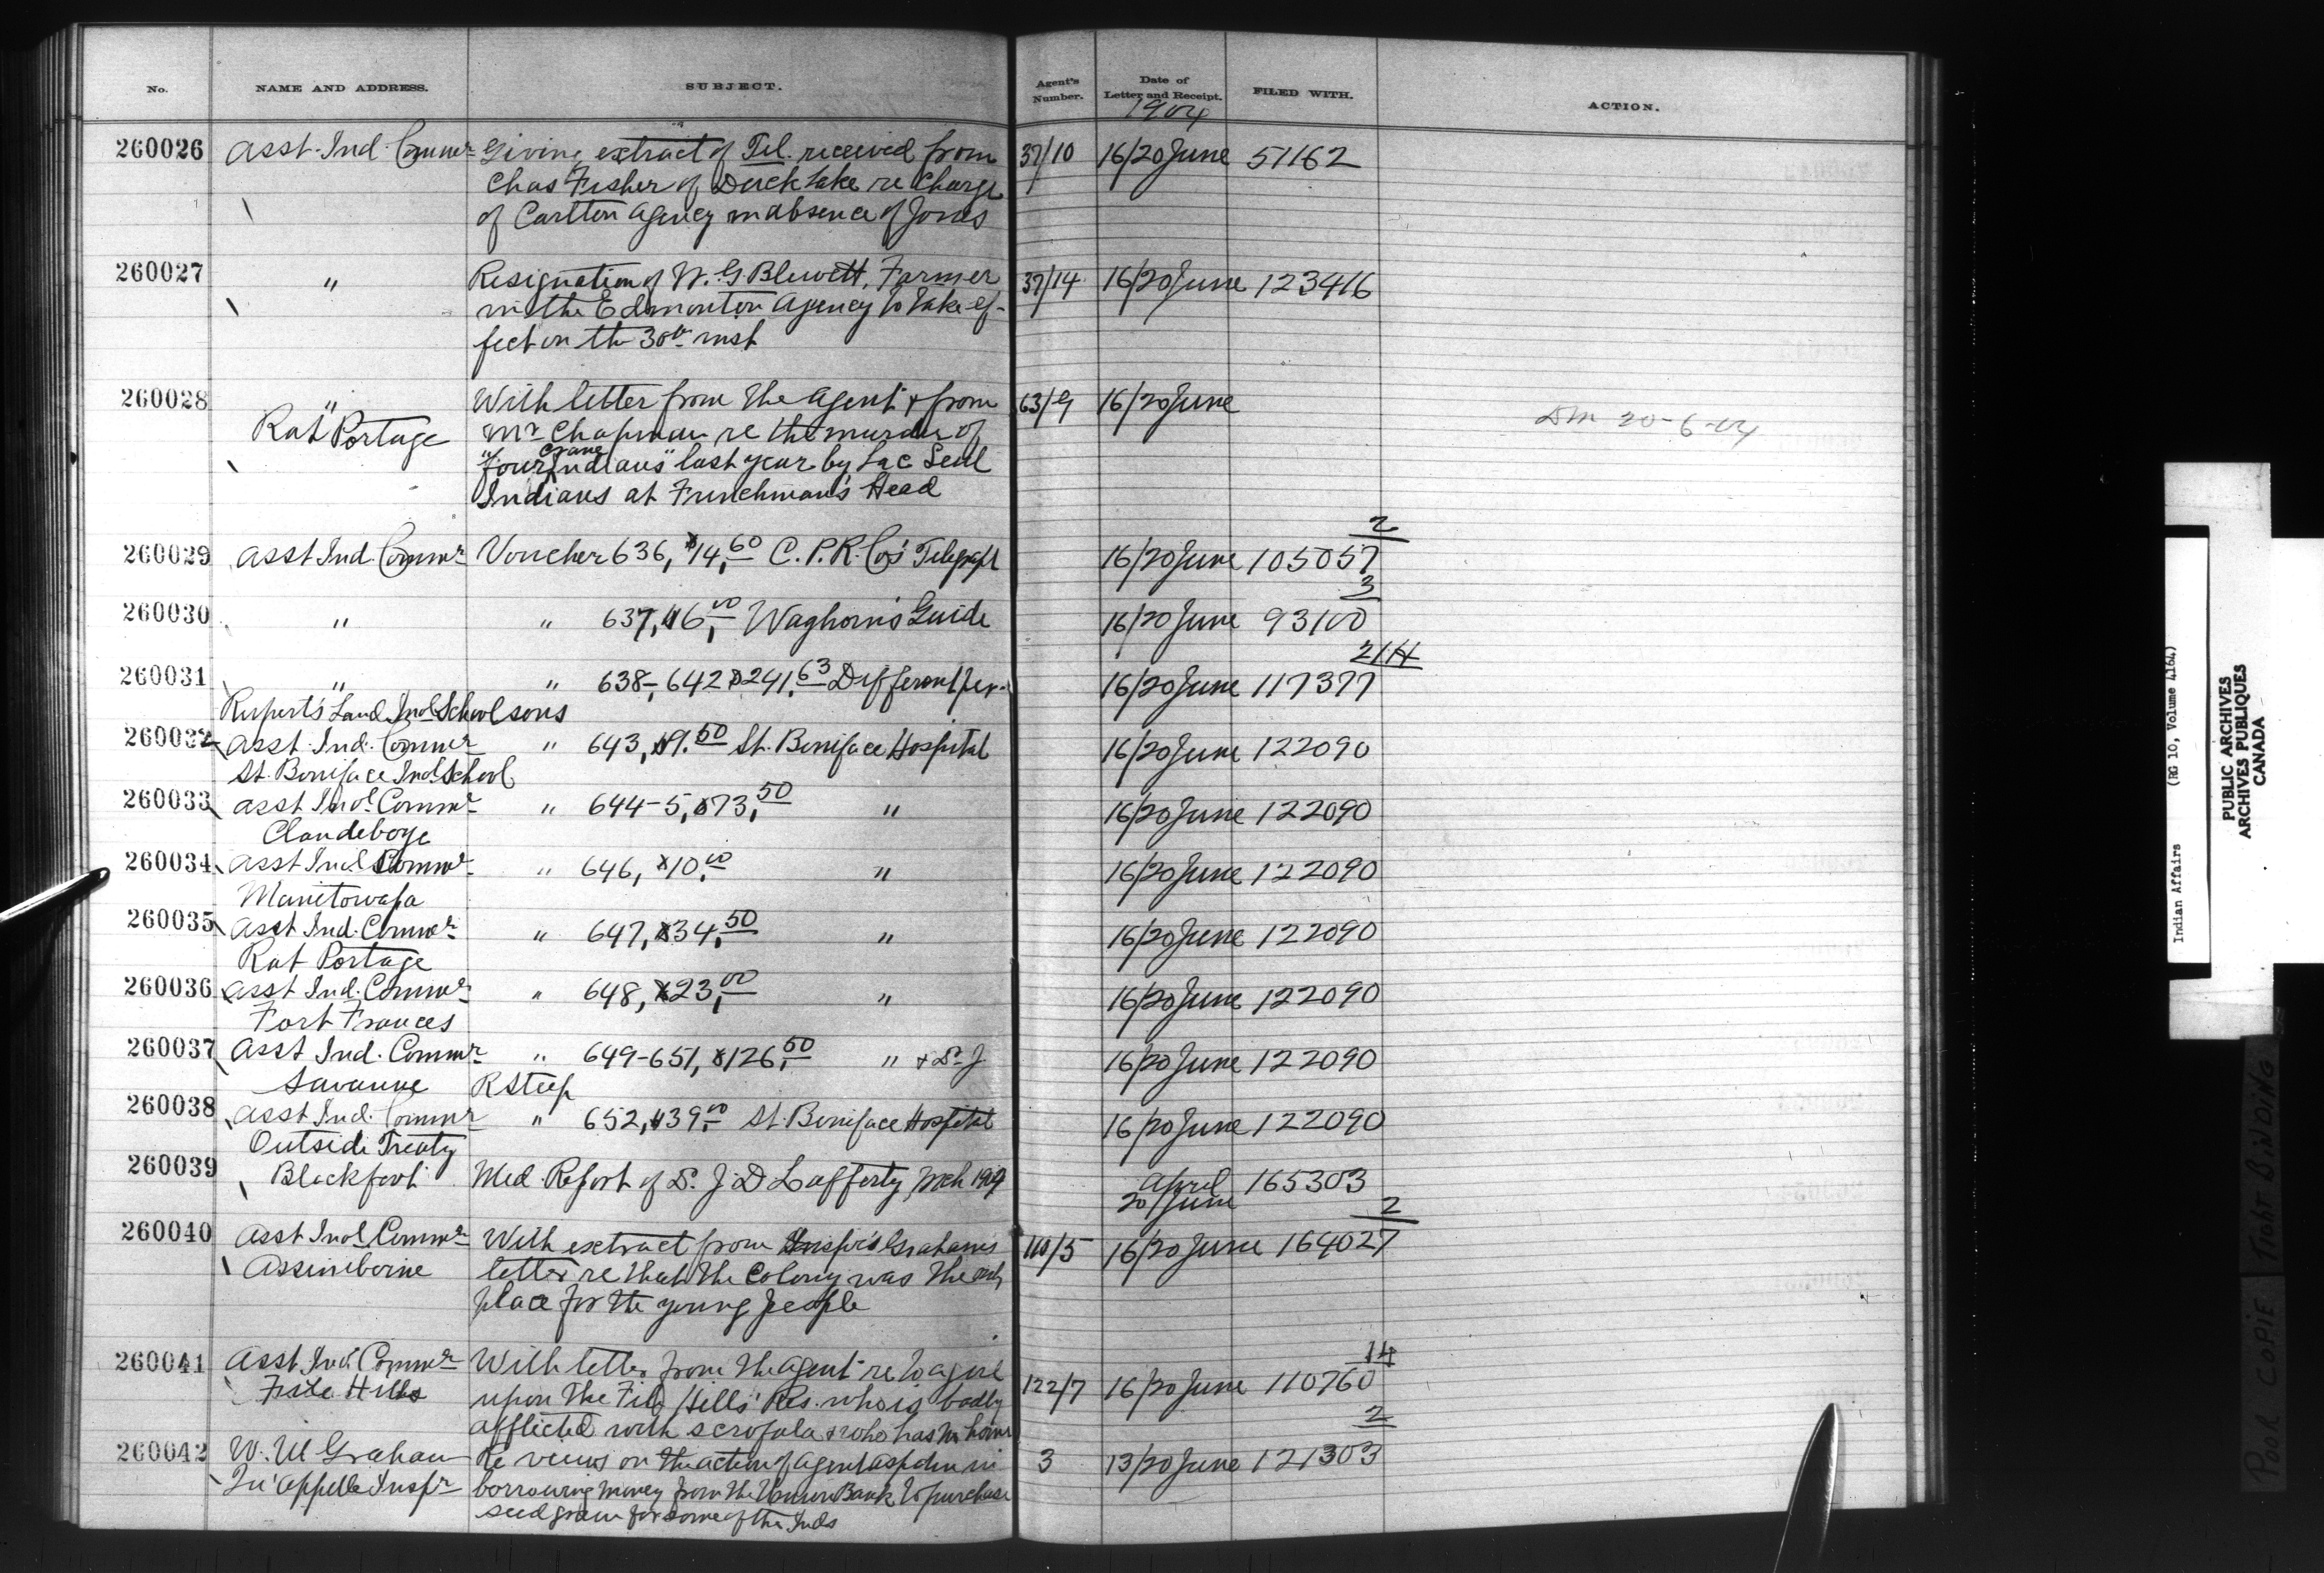 No. NAME AND ADDRESS. SUBJECT. Agent's Number. Date of Letter and Receipt. FILED WITH. ACTION.
1904
260026 Asst. Ind. Commr Giving extract of Tel. received from 37/10 16/20 June 51162
Chas Fisher of Duck Lake re Charge
of Carlton Agency in absence of Jones
260027 " Resignation of W. G. Blewett, Farmer 37/14 16/20 June 123416
in the Edmonton Agency to take ef-
fect on the 30th inst
260028 " With letter from the Agent & from 63/9 16/20 June
Rat Portage Mr Chapman re the murder of Dm 20-6-04
"four Crane Indians" last year by Lac Seul
Indians at Frenchman's Head
260029 Asst Ind. Commr Voucher 636, $14,60 C.P.R. Co's Telegraph 16/20 June 105057 2
260030 " " 637, $6,00 Waghorn's Guide 16/20 June 93100 3
260031 " " 638-, 642 $241.63 Different per- 16/20 June 117377 2/14
Rupert's Land Ind. School sons
260032 Asst. Ind. Commr " 643, $9.50 St. Boniface Hospital 16/20 June 122090
St. Boniface Ind. School
260033 Asst Ind. Commr " 644-5, $73,50 " 16/20 June 122090
Clandeboye
260034 Asst Ind. Commr " 646, $10.00 " 16/20 June 122090
Manitowapa
260035 Asst Ind. Commr " 647, $34,50 " 16/20 June 122090
Rat Portage
260036 Asst Ind. Commr " 648, $23,00 " 16/20 June 122090
Fort Frances
260037 Asst Ind. Commr " 649-651, $126,50 " & Dr J 16/20 June 122090
Savanne R Steep
260038 Asst Ind. Commr " 652, $39.00 St. Boniface Hospital 16/20 June 122090
Outside Treaty
260039 Blackfoot Med. Report of Dr. J. D Lafferty, Mch 1904 April 165303
20/June
260040 Asst Ind. Commr With extract from Inspr's Graham's 110/5 16/20 June 164027 2
Assiniboine letter re that the Colony was the only
place for the young people
260041 Asst Ind. Commr With letter from the Agent re to a girl 122/7 16/20 June 110760 14
File Hills upon the File Hills' Res. who is badly
afflicted with scrofula & who has no home
260042 W. M Graham Re views on the action of Agent Aspdin in 3 13/20 June 121303 2
Qu'Appelle Inspr borrowing money from the Union Bank to purchase
seed grain for some of the Inds
Indian Affairs (RG 10, Volume 4164)
PUBLIC ARCHIVES
ARCHIVES PUBLIQUES
CANADA
POOR COPIE TIGHT BINDING